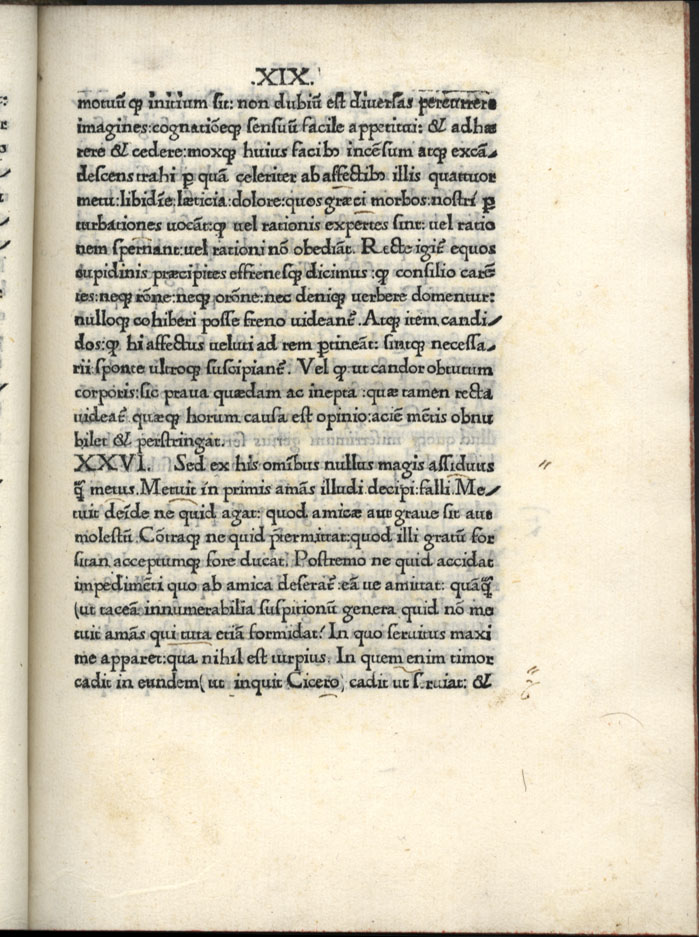 .XIX.
motuū qꝫ initium sit: non dubiū est diuersas percurrere
imagines:cognatiōeqꝫ sensuū facile appetitui: & adhæ
rere & cedere:moxqꝫ huius facibꝰ incēsum atqꝫ excā⸗
descens trahi ꝑ quā celeriter ab affectibꝰ illis quattuor
metu:libidīe:læticia:dolore:quos græci morbos:nostri ꝑ
turbationes uocāt:ꝙ uel rationis expertes sint: uel ratio
nem spernant:uel rationi nō obediāt. Recte igit̄ equos
cupidinis præcipites effrenesqꝫ dicimus :ꝙ consilio carē
tes:neqꝫ rōne:neqꝫ orōne:nec deniqꝫ uerbere domentur:
nulloqꝫ cohiberi posse freno uideanť .Atqꝫ item candi⸗
dos:ꝙ hi affectus ueluti ad rem ꝑtineāt: sintqꝫ necessa⸗
rii:sponte ultroqꝫ suscipianť . Vel ꝙ ut candor obtutum
corporis:sic praua quædam ac inepta :quæ tamen recta
uideať quæqꝫ horum causa est opinio:aciē mētis obnu
bilet & perstringat.
XXVI. Sed ex his omībus nullus magis assiduus
ꝙ̄ metus.Metuit in primis amās illudi decipi:falli.Me⸗
tuit deīde ne quid agat: quod amicæ aut graue sit aut
molestū .Cōtraqꝫ ne quid p̄termittat:quod illi gratū for
sitan acceptumqꝫ fore ducat. Postremo ne quid accidat
impedimēti quo ab amica deserať :eā ue amittat: quāꝙ̄
(ut taceā innumerabilia suspitionū genera quid nō me
tuit amās qui tuta etiā formidat? In quo seruitus maxi
me apparet:qua nihil est turpius. In quem enim timor
cadit in eundem( ut inquit Cicero) cadit ut seruiat: &